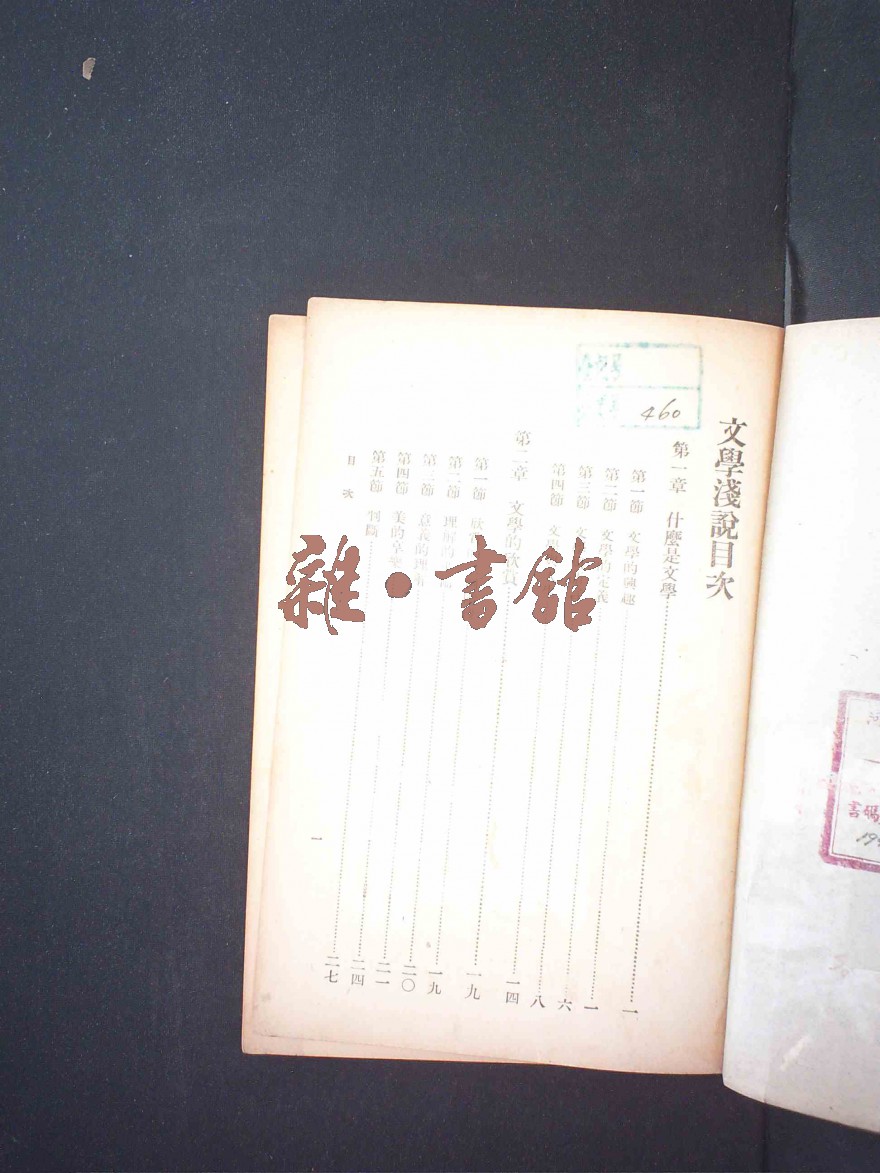 文學淺說目次
第一章 什麼是文學 一
第一節 文學的興趣 一
第二節 文學的定義 六
第三節 文 八
第四節 文學 一四
第二章 文學的欣賞 一九
第一節 欣賞 一九
第二節 理解的 二〇
第三節 意義的理解 二一
第四節 美的 二四
第五節 判斷 二七
目次
一
460
雜·書館
書碼